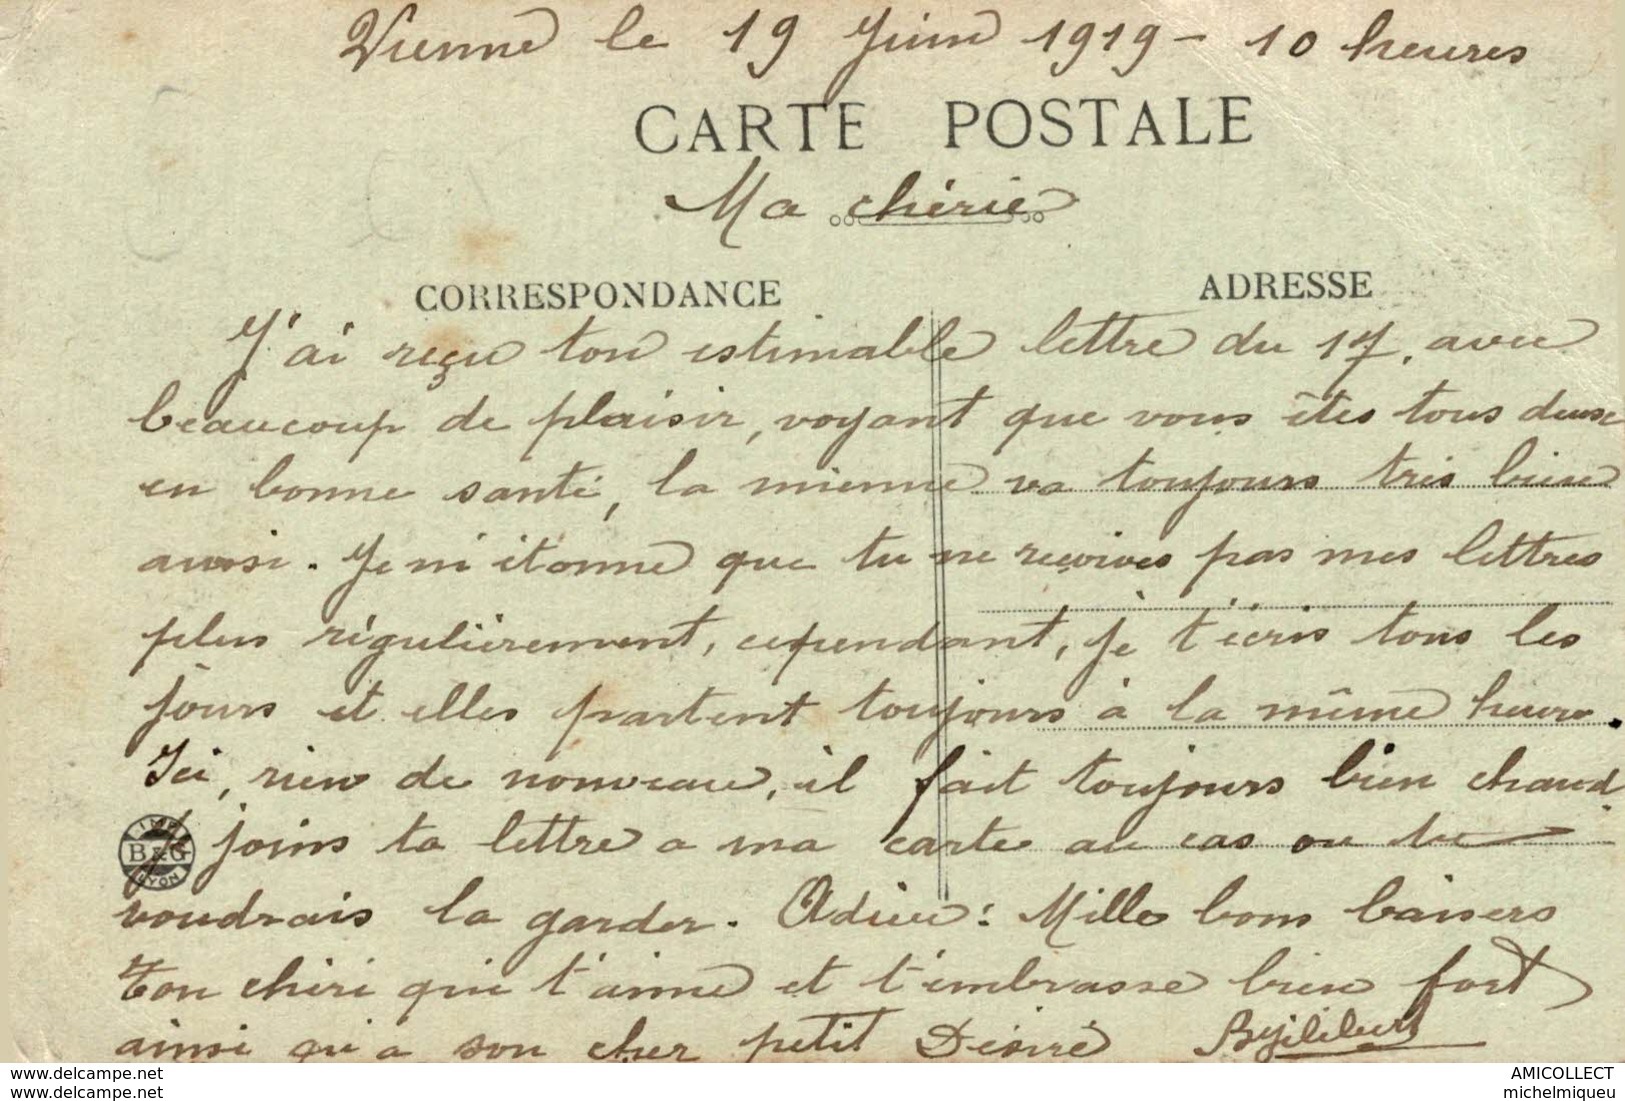 Vienne le 19 Juin 1919 - 10 heures
CARTE POSTALE
Ma chérie
CORRESPONDANCE ADRESSE
J'ai reçu ton estimable lettre du 17. avec
beaucoup de plaisir, voyant que vous êtes tous deux
en bonne santé, la mienne va toujours très bien
aussi. Je m'étonne que tu ne reçoives pas mes lettres
plus régulièrement, cependant, je t'écris tous les
jours et elles partent toujours à la même heure.
Ici, rien de nouveau, il fait toujours bien chaud.
Je joins ta lettre a ma carte au cas ou tu
IMP.
B&G
LYON
voudrais la garder. Adieu: Mille bons baisers
Ton chéri qui t'aime et t'embrasse bien fort
ainsi qu'a son cher petit Désiré
www.delcampe.net AMICOLLECT
www.delcampe.net michelmiqueu